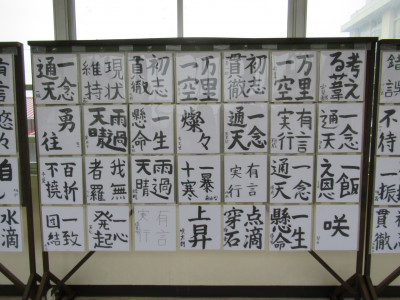 錯誤
不待
一振
貫徹
考え
る葦
万里
一空
初志
貫徹
万里
一空
初志
貫徹
現状
維持
一念
通天
一念
通天
有言
実行
一念
通天
燦々
一生
懸命
雨過
天晴
勇往
一飯
之恩
一念
通天
有言
実行
一暴
十寒
雨過
天晴
我無
者羅
百折
不撓
咲
一生
懸命
点滴
穿石
上昇
有言
実行
一心
発起
一致
団結
有言
悠々
水滴